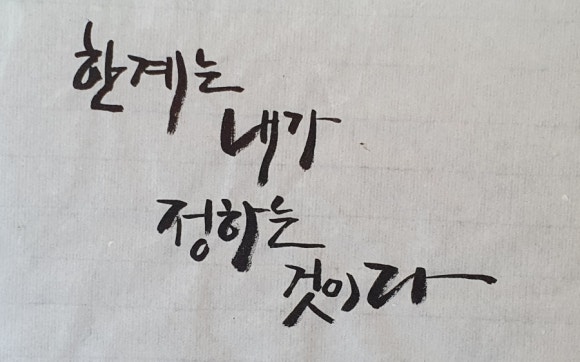 한계는
내가
정하는
것이다